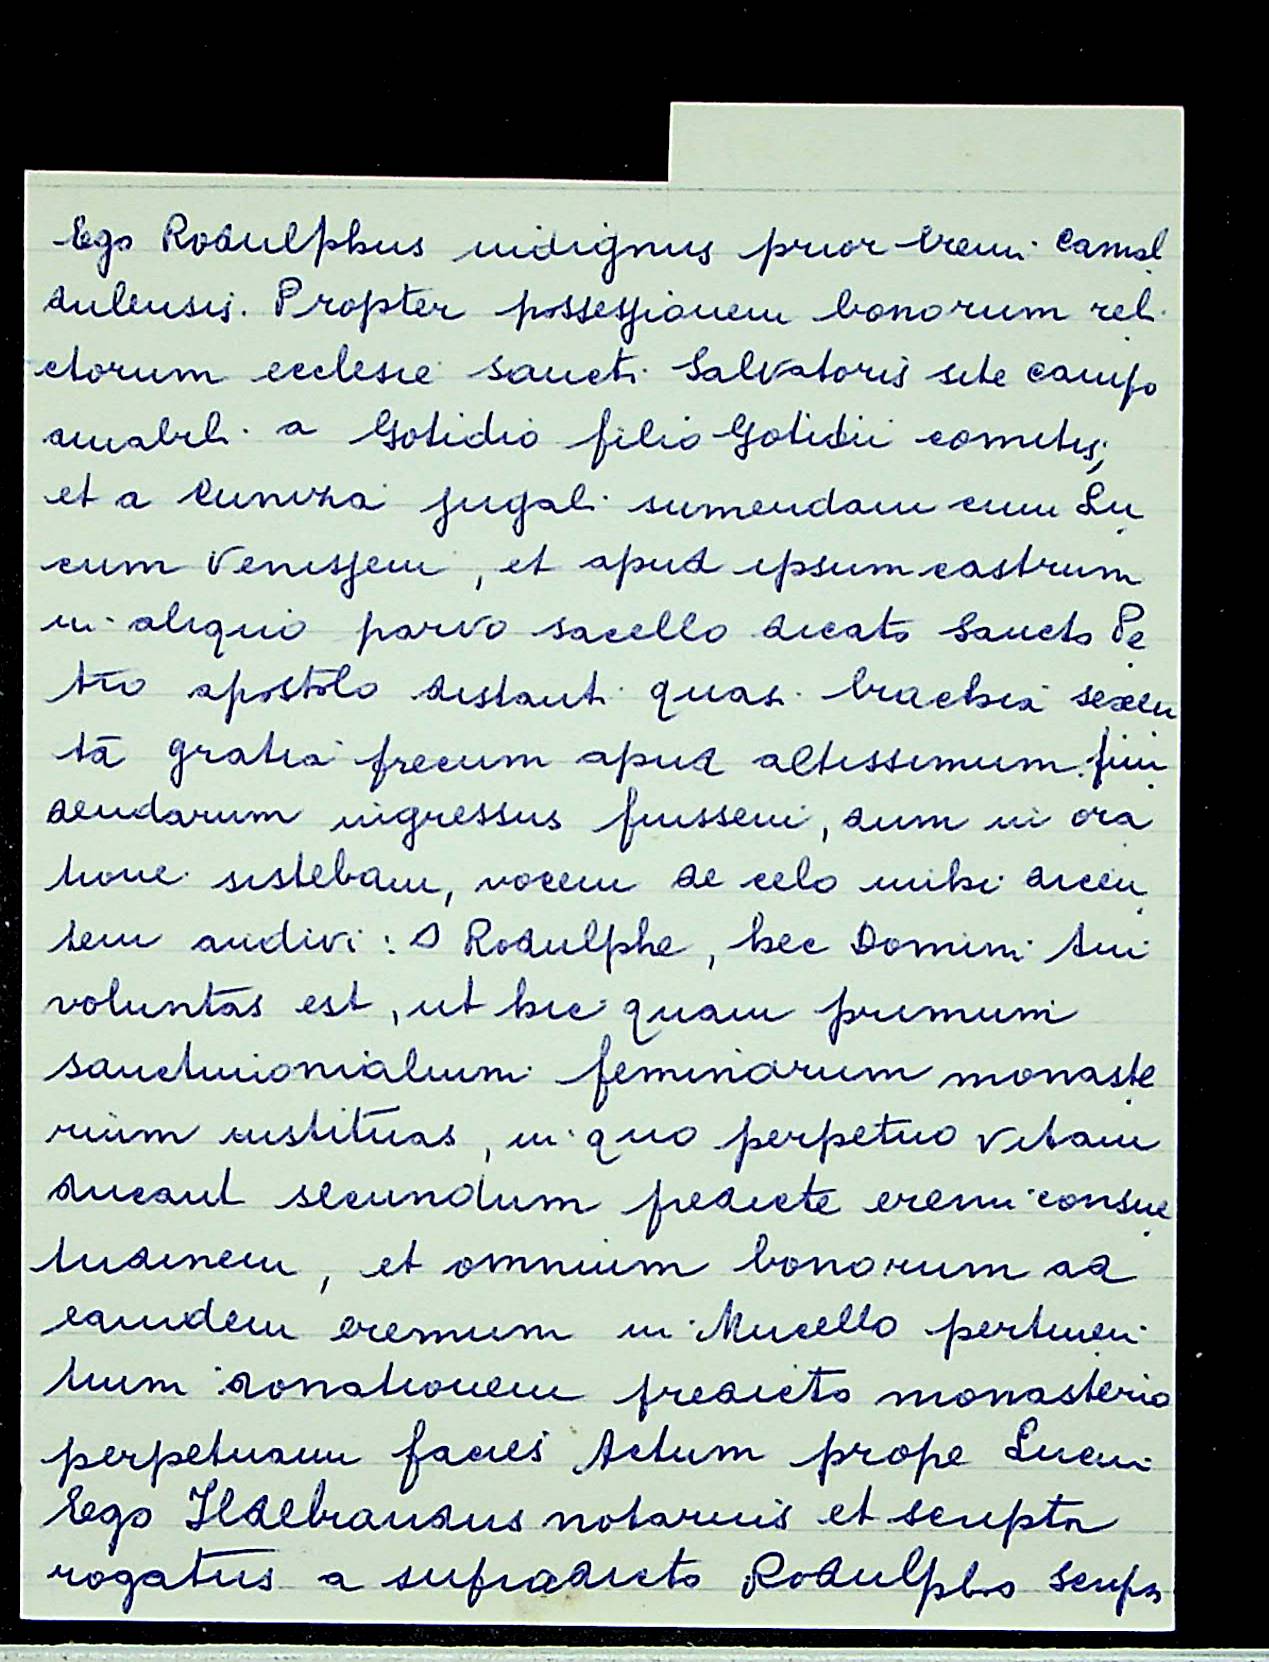 Ego Rodulphus indignus prior Eremi Camal
dulensis. Propter possessionem bonorum reli
ctorum ecclesie Sancti Salvatoris site campo
amabili a Gotidio filio Gotidii comitis,
et a Cuniza jugali sumendam cum Lu
cum venissem, et apud ipsum castrum
in aliquo parvo sacello dicato Sancto Pe
tro apostolo distanti quasi brachia sexen
ta gratia precum apud altissimum fun
dendarum ingressus fuissem, dum in ora
tione sistebam, vocem de celo mihi dicen
tem audivi: O Rodulphe, hec Domini tui
voluntas est, ut hic quam primum
sanctimonialium feminarum monaste
rium instituas, in quo perpetuo vitam
ducant secundum predicte eremi consue
tudinem, et omnium bonorum ad
eamdem eremum in Mucello pertinen
tium donationem predicto monasterio
perpetuam facies Actum prope Lucum
Ego Ildebrandus notarius et scriptor
rogatus a supradicto Rodulpho scripsi